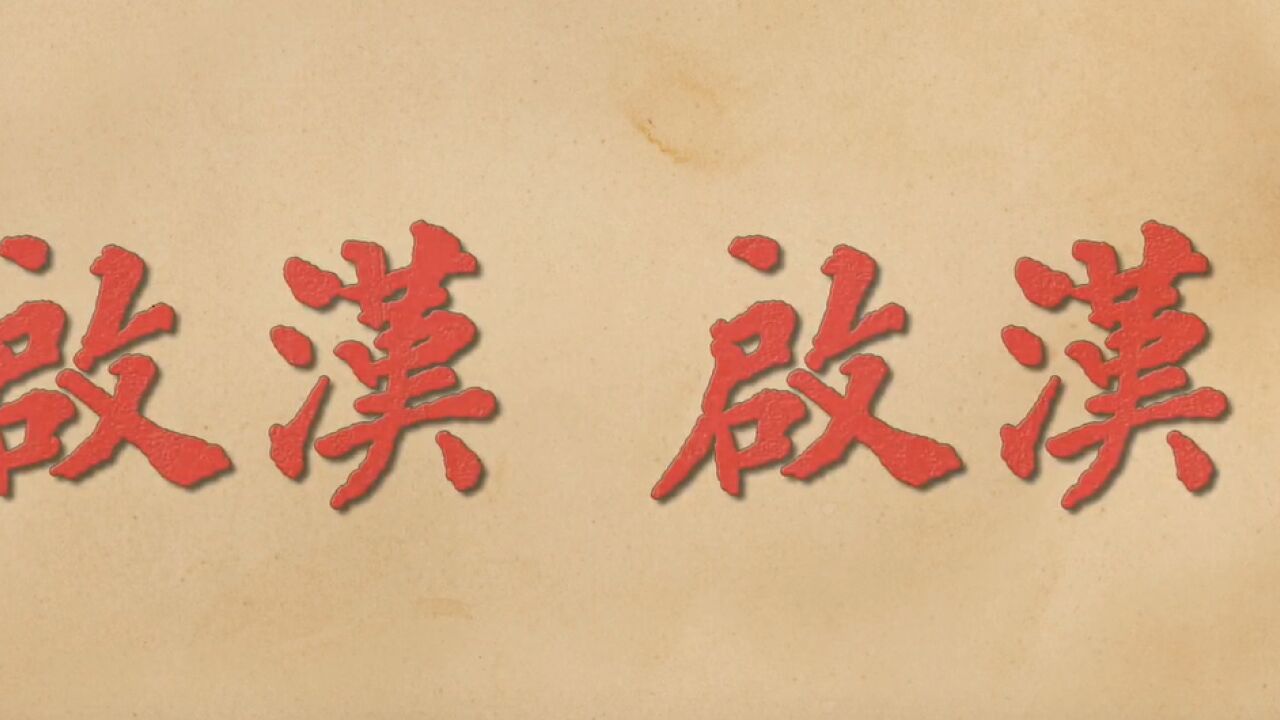 啟漢 啟漢